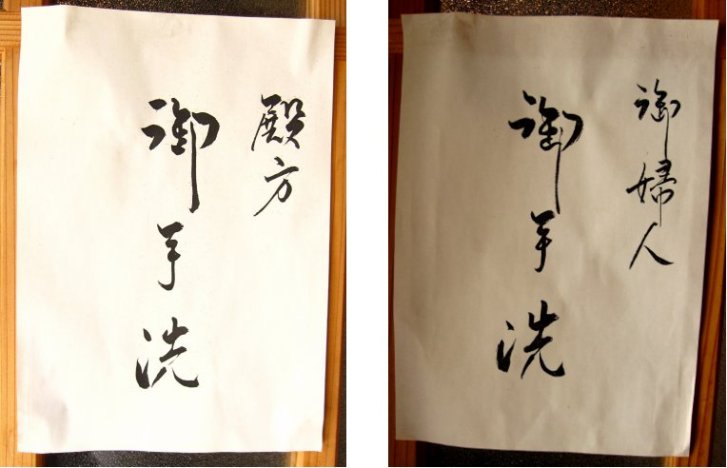 殿方
御手洗
御婦人
御手洗